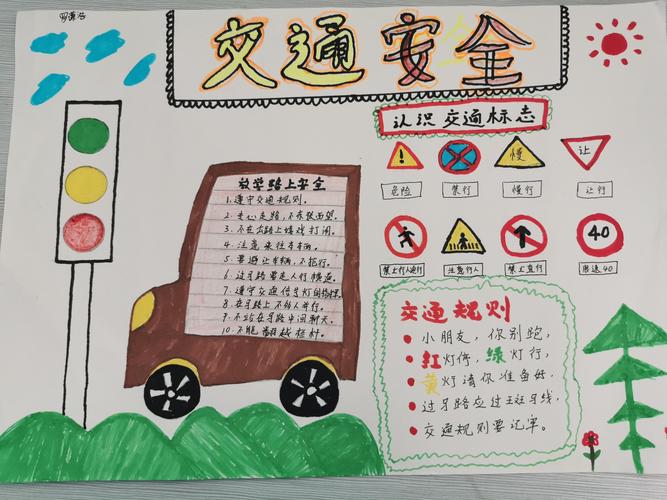 交通安全
认识交通标志
!
慢
让
危险
禁行
慢行
让行
40
禁止行人通行
注意行人
禁止直行
限速40
放学路上安全
1.遵守交通规则。
2.专心走路,不东张西望。
3.不在马路上嬉戏打闹。
4.注意来往车辆。
5.要避让车辆,不抢行。
6.过马路要走人行横道。
7.遵守交通信号灯
8.在马路上不多人并行。
9.不站在马路中间聊天。
10.不能翻越栏杆。
交通规则
小朋友,你别跑,
红灯停,绿灯行,
黄灯请你准备好,
过马路应过斑马线,
交通规则要记牢。